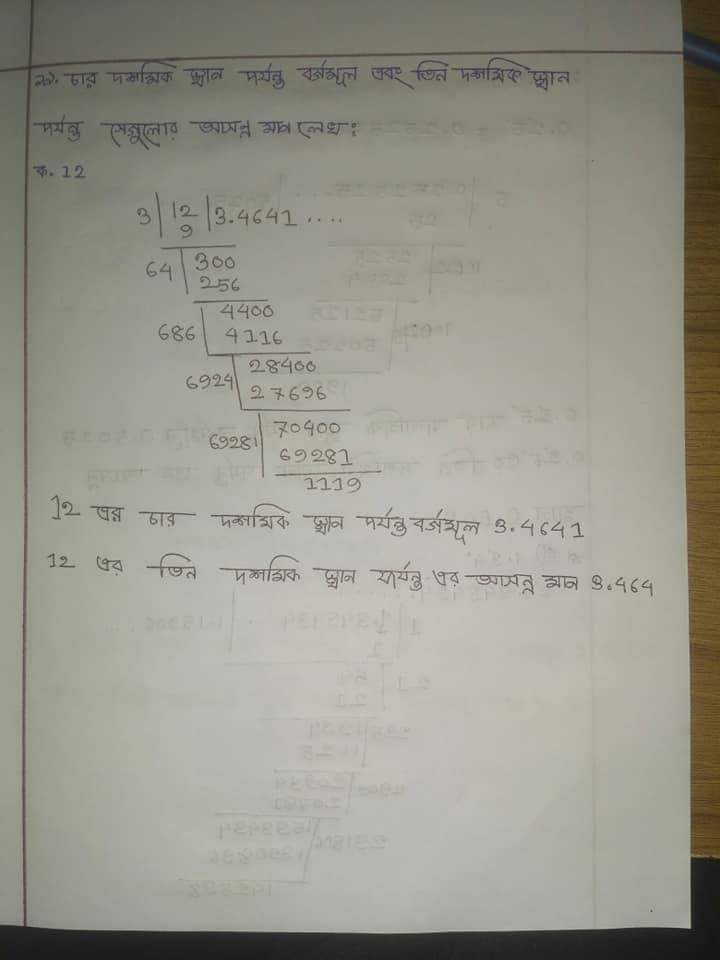 ২১. চার দশমিক স্থান পর্যন্ত বর্গমূল এবং তিন দশমিক স্থান
পর্যন্ত সেগুলোর আসন্ন মান লেখ:
ক. 12
3 | 12 | 3.4641 ....
9
64 | 300
256
686 | 4400
4116
6924 | 28400
27696
69281 | 70400
69281
1119
12 এর চার দশমিক স্থান পর্যন্ত বর্গমূল 3.4641
12 এর তিন দশমিক স্থান পর্যন্ত এর আসন্ন মান 3.464